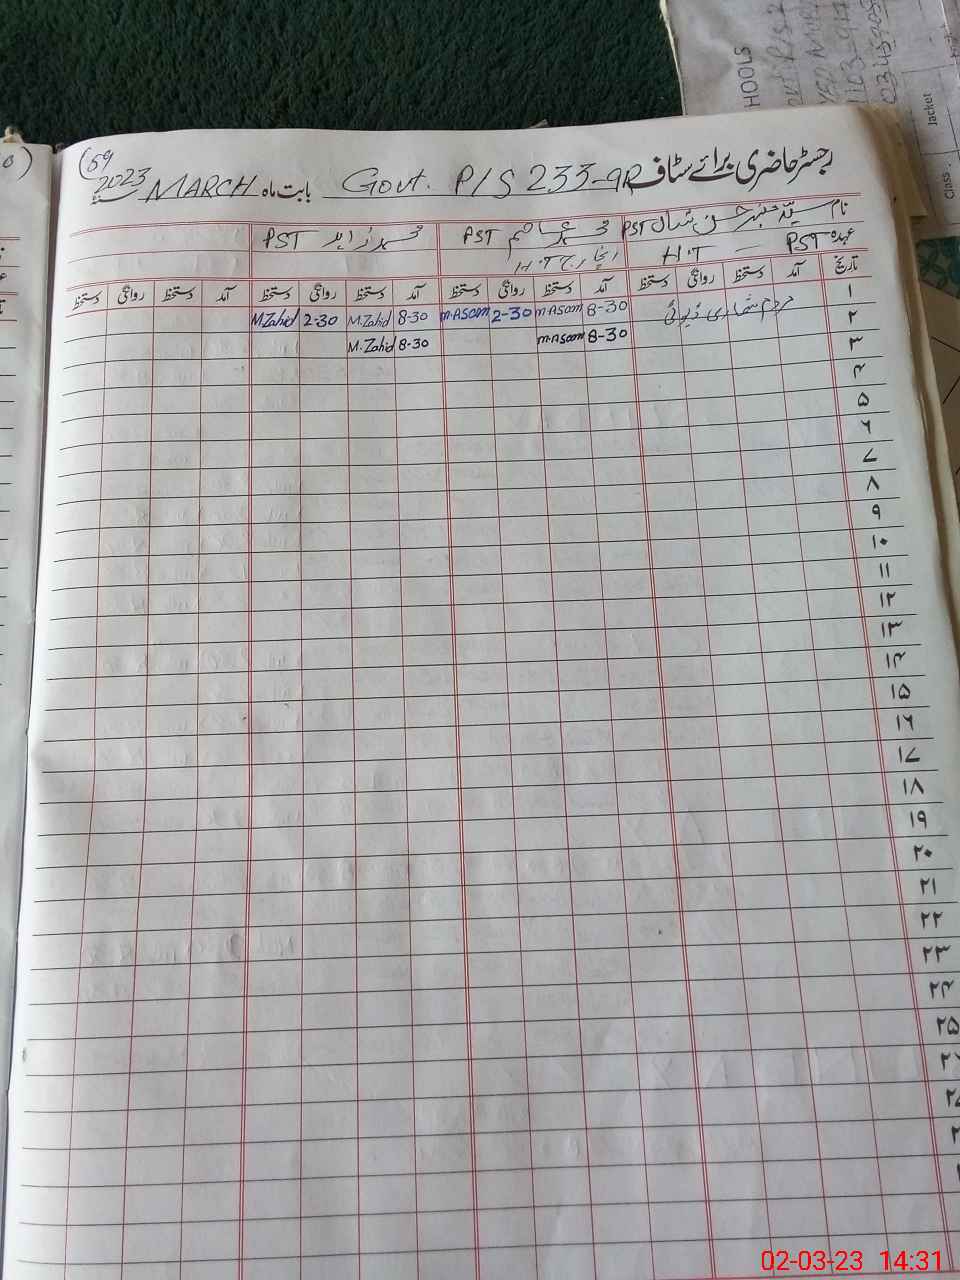 رجسٹر حاضری برائے سٹاف Govt. P/S 233-9R بابت ماہ MARCH 2023
(59
نام سید حسن PST محمد عاصم PST محمد زاہد PST
عہدہ PST — H.T انچارج H.T
تاریخ آمد دستخط روانگی دستخط آمد دستخط روانگی دستخط آمد دستخط روانگی دستخط آمد دستخط روانگی دستخط
۱ مردم شماری ڈیوٹی 8-30 M.Asam 2-30 M.Asam 8-30 M.Zahid 2-30 M.Zahid
۲ 8-30 M.Asam 8-30 M.Zahid
۳
۴
۵
۶
۷
۸
۹
۱۰
۱۱
۱۲
۱۳
۱۴
۱۵
۱۶
۱۷
۱۸
۱۹
۲۰
۲۱
۲۲
۲۳
۲۴
۲۵
HOOLS
Jacket
Class
02-03-23 14:31